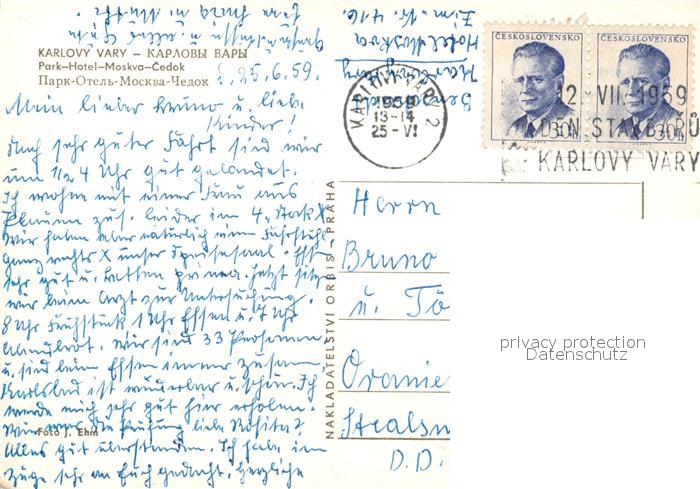 KARLOVY VARY – КАРЛОВЫ ВАРЫ
Park–Hotel–Moskva–Čedok
Парк-Отель-Москва-Чедок
d. 25.6.59.
Mein lieber Bruno u. liebe
Kinder!
Nach sehr guter Fahrt sind wir
um 1/2 4 Uhr gut gelandet.
Ich wohne mit einer Frau aus
Plauen zus. leider im 4. Stock
Wir haben aber natürlich einen Fahrstuhl
ganz rechts X unser Speisesaal. Essen
sehr gut u. Betten prima. Jetzt sitzen
wir beim Arzt zur Untersuchung.
8 Uhr Frühstück 1 Uhr Essen u. 7 Uhr
Abendbrot. Wir sind 33 Personen
u. sind beim Essen immer zusammen
Karlsbad ist wunderbar u. schön. Ich
werde mich sehr gut hier erholen.
Wie war die Prüfung liebe Rosita?
Alles gut überstanden. Ich habe im
Zuge sehr an Euch gedacht. Herzliche
Foto J. Ehm
Hotel Moskva
Zim. Nr. 416.
NAKLADATELSTVÍ ORBIS – PRAHA
ČESKOSLOVENSKO
30h
ČESKOSLOVENSKO
30h
KARLOVY VARY 2
1959
13-14
25-VI
12. VII. 1959
DEN STAVBAŘŮ
KARLOVY VARY
Herrn
Bruno
u. Tö
Oranie
Stralsu
D.D.
privacy protection
Datenschutz